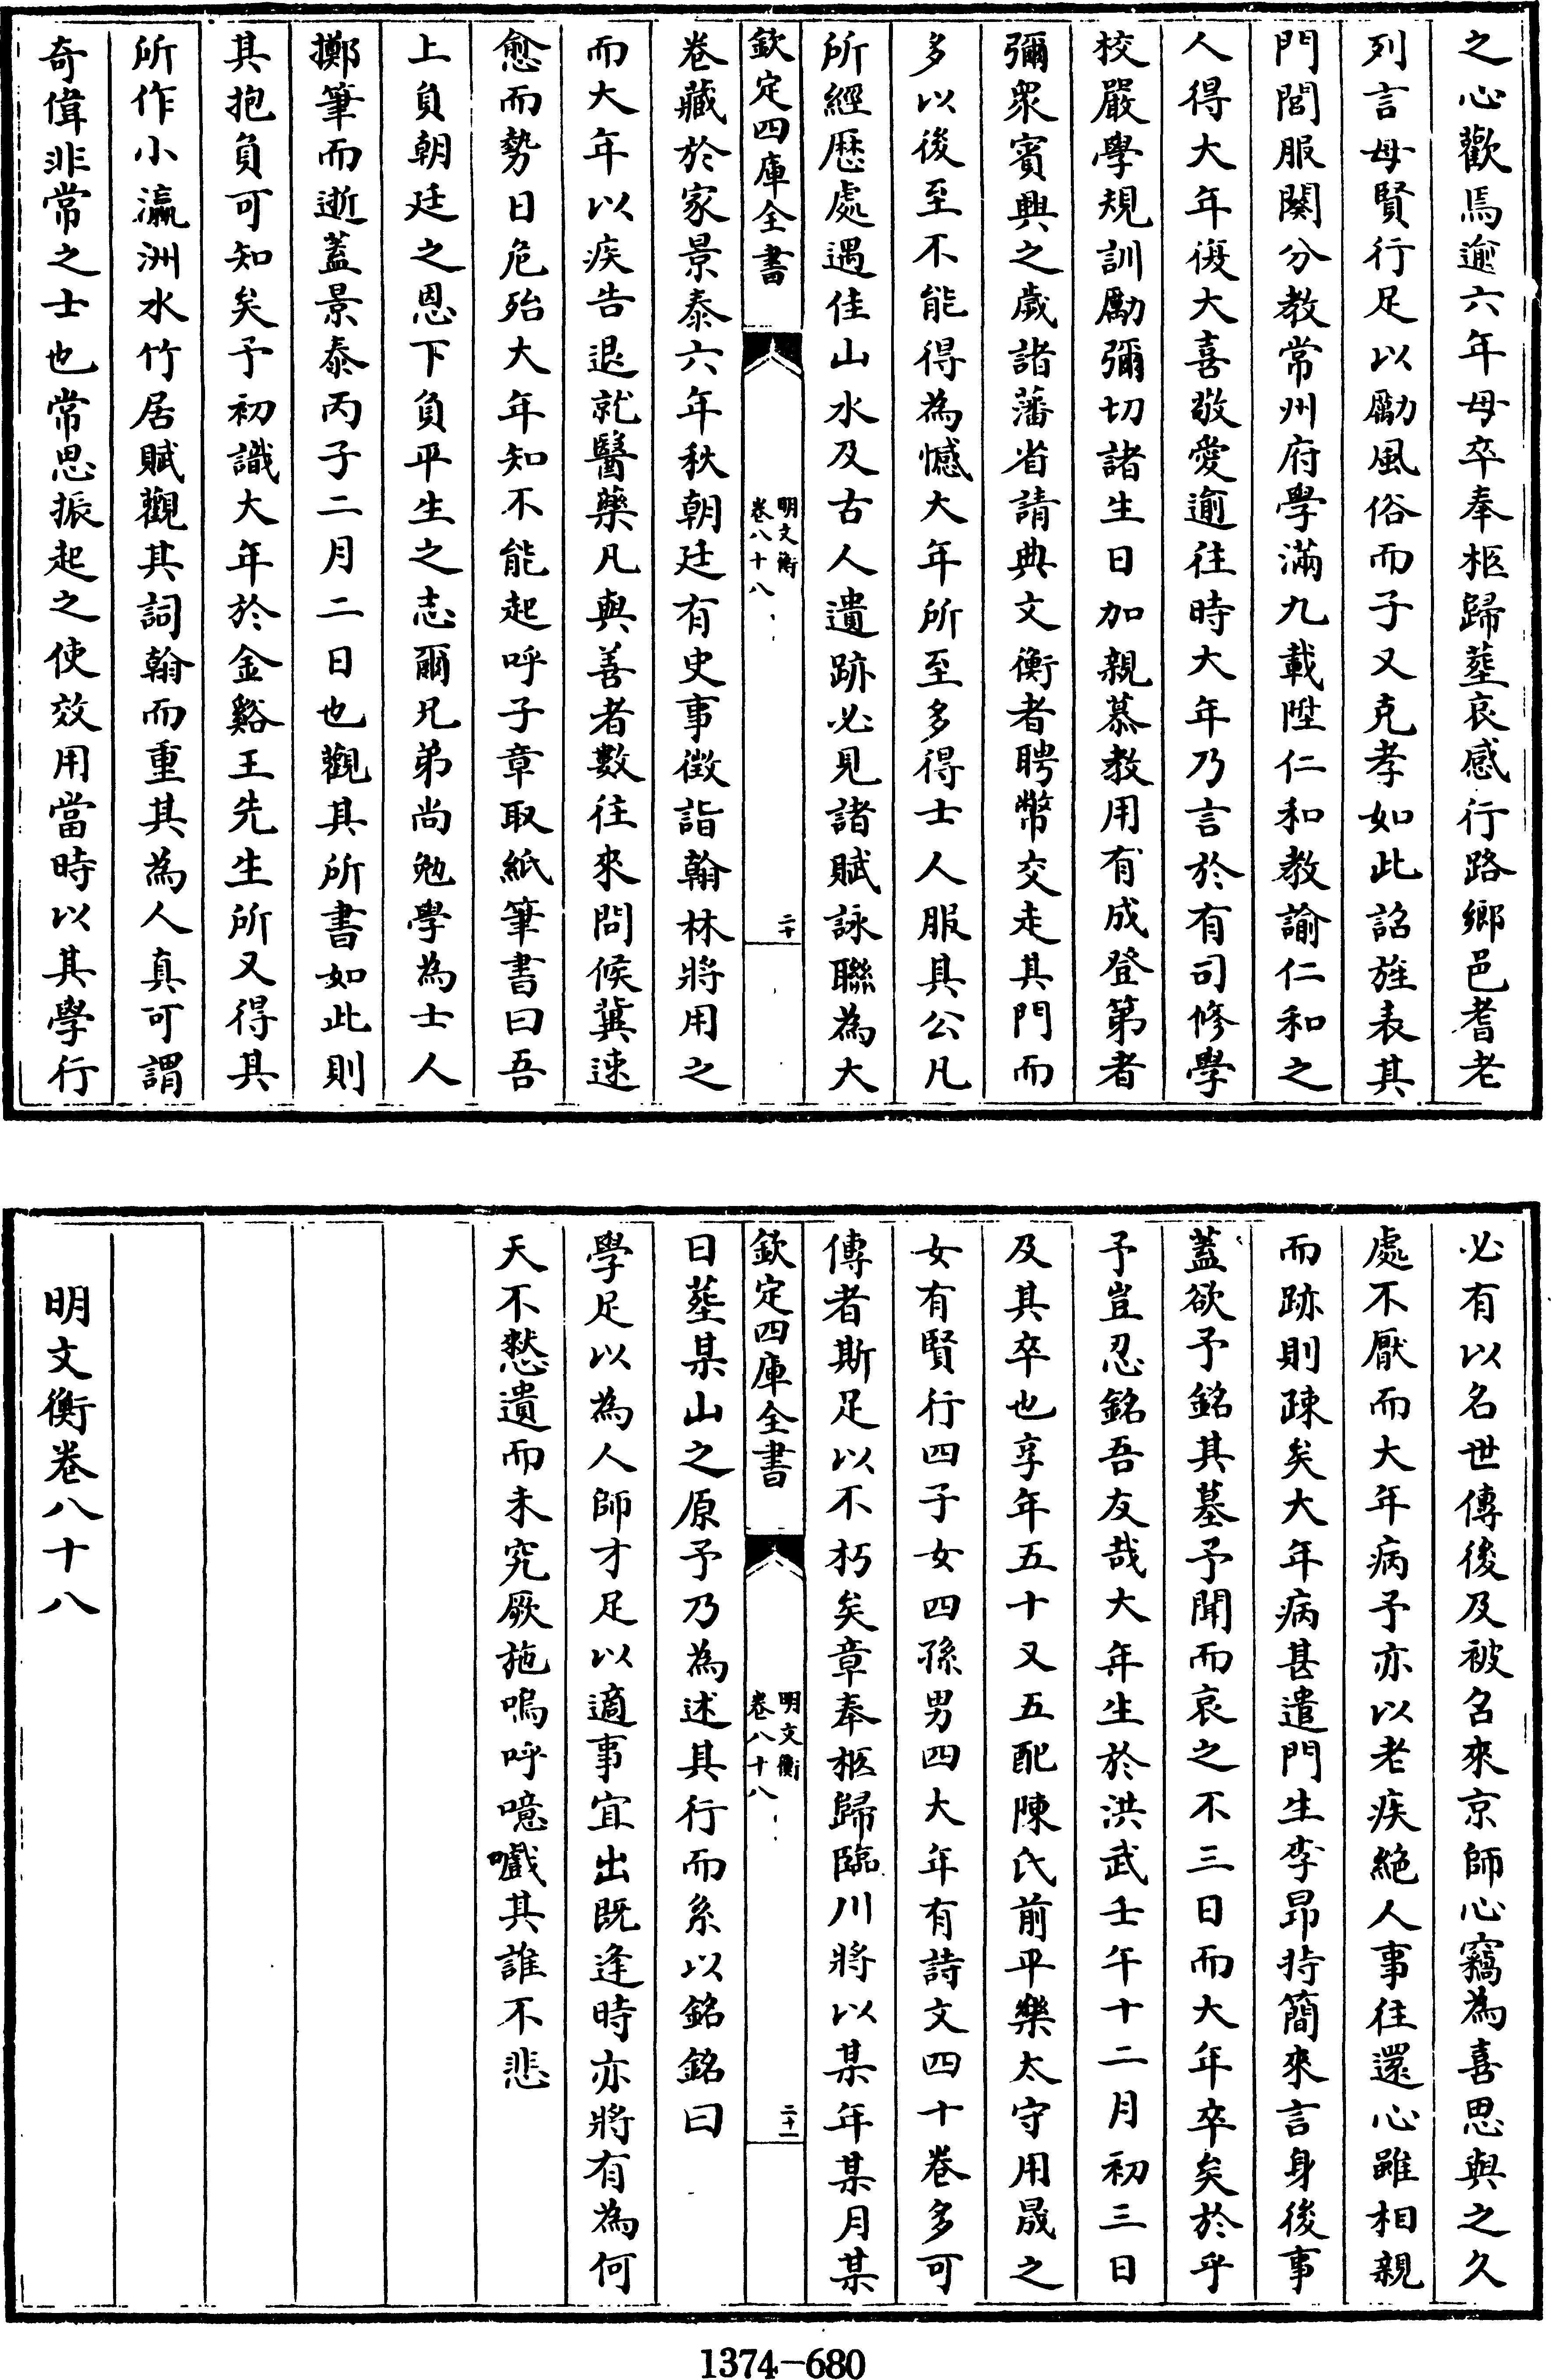 之心歡焉逾六年母卒奉柩歸塟哀感行路鄉邑耆老
列言母賢行足以勵風俗而子又克孝如此詔旌表其
門閭服闋分教常州府學滿九載陞仁和教諭仁和之
人得大年復大喜敬愛逾往時大年乃言於有司修學
校嚴學規訓勵彌切諸生日加親慕教用有成登第者
彌衆賓興之歲諸藩省請典文衡者聘幣交走其門而
多以後至不能得為憾大年所至多得士人服其公凡
所經歴處遇佳山水及古人遺跡必見諸賦詠聯為大
欽定四庫全書
明文衡
卷八十八
二十
卷藏於家景泰六年秋朝廷有史事徴詣翰林將用之
而大年以疾告退就醫藥凡與善者數往來問候冀速
愈而勢日危殆大年知不能起呼子章取紙筆書曰吾
上負朝廷之恩下負平生之志爾兄弟尚勉學為士人
擲筆而逝蓋景泰丙子二月二日也觀其所書如此則
其抱負可知矣予初識大年於金谿王先生所又得其
所作小瀛洲水竹居賦觀其詞翰而重其為人真可謂
奇偉非常之士也常思振起之使效用當時以其學行
必有以名世傳後及被召來京師心竊為喜思與之久
處不厭而大年病予亦以老疾絶人事往還心雖相親
而跡則踈矣大年病甚遣門生李昂持簡來言身後事
蓋欲予銘其墓予聞而哀之不三日而大年卒矣於乎
予豈忍銘吾友哉大年生於洪武壬午十二月初三日
及其卒也享年五十又五配陳氏前平樂太守用晟之
女有賢行四子女四孫男四大年有詩文四十巻多可
傳者斯足以不朽矣章奉柩歸臨川將以某年某月某
欽定四庫全書
明文衡
卷八十八
二十一
日塟某山之原予乃為述其行而系以銘銘曰
學足以為人師才足以適事宜出既逢時亦將有為何
天不憖遺而未究厥施嗚呼噫嚱其誰不悲
明文衡卷八十八
1374-680